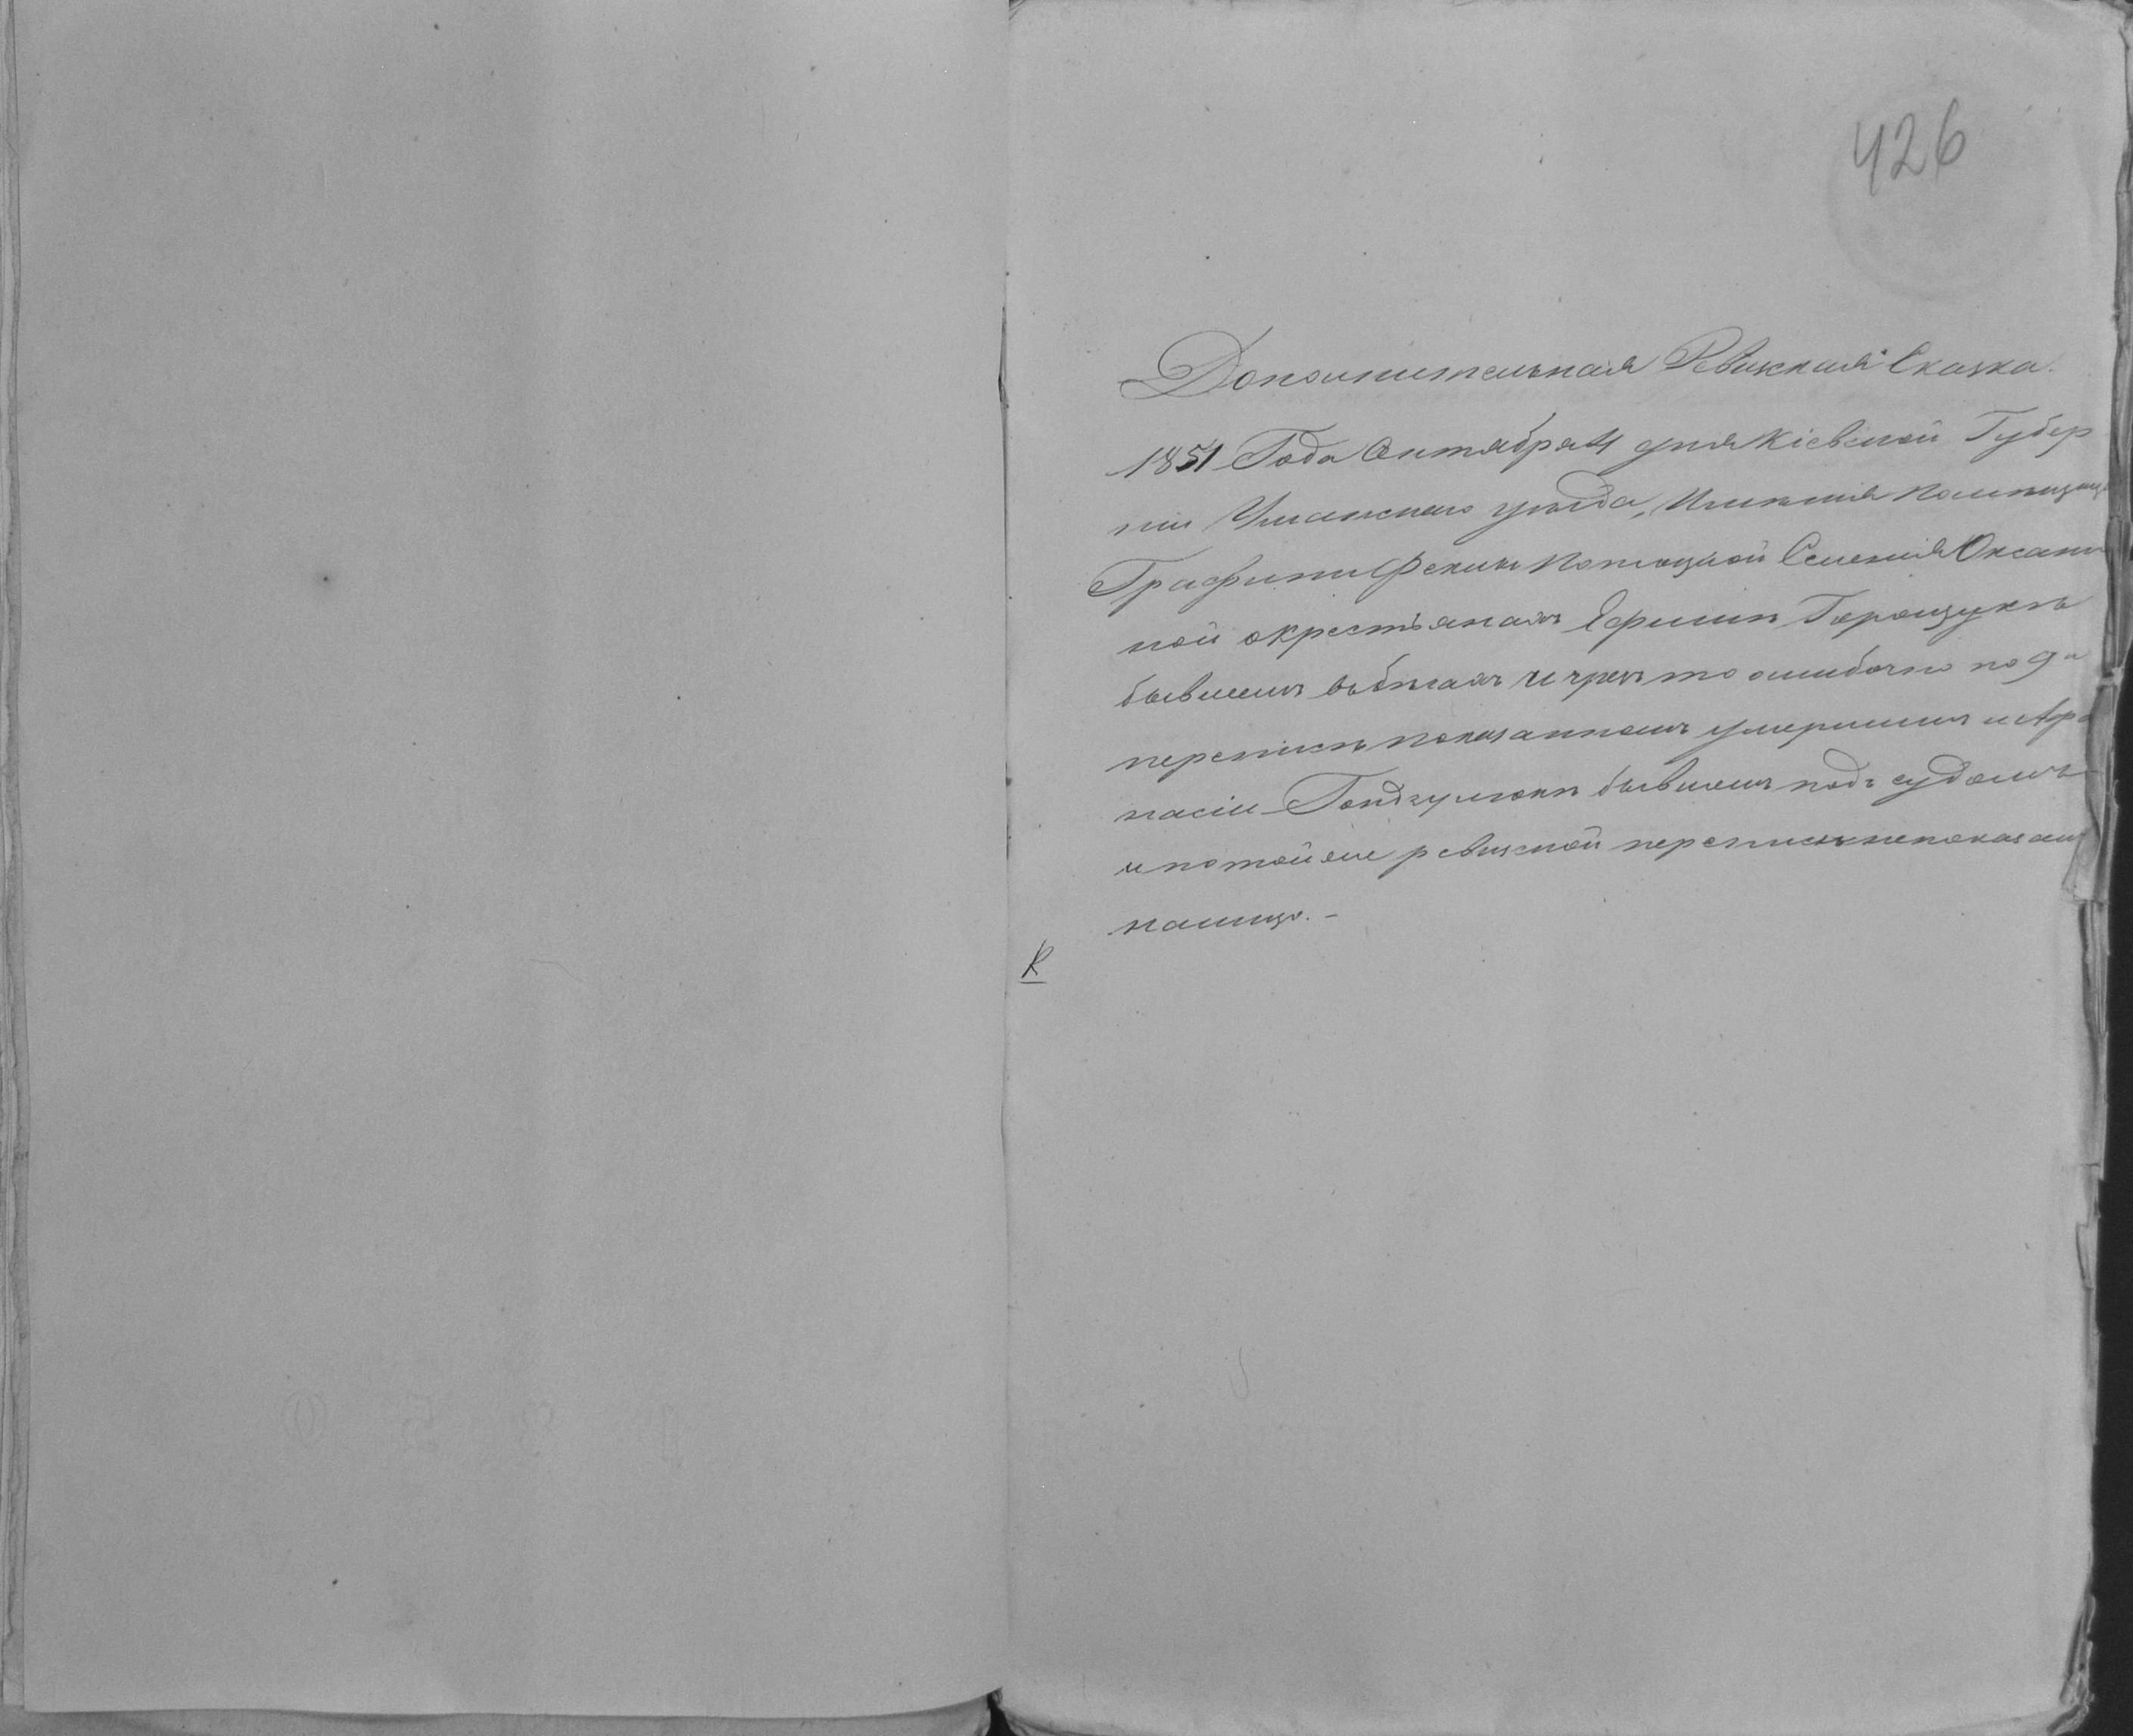 426
Дополнительная Ревизская Сказка.
1851 Года Октября 4 дня Кіевской Губер
ніи Уманскаго уезда, Имѣнія Помѣщицы
Графини Феклы Потоцкой Селенія Оксани
ной окрестьянахъ Ефимѣ Горощукѣ
бывшемъ вбѣгахъ и чрезъ то ошибочно по 9й
переписи показанномъ умершимъ и Афа
насіи бывшемъ подъ судомъ
и по той же ревизской переписи непоказан
налицо. -